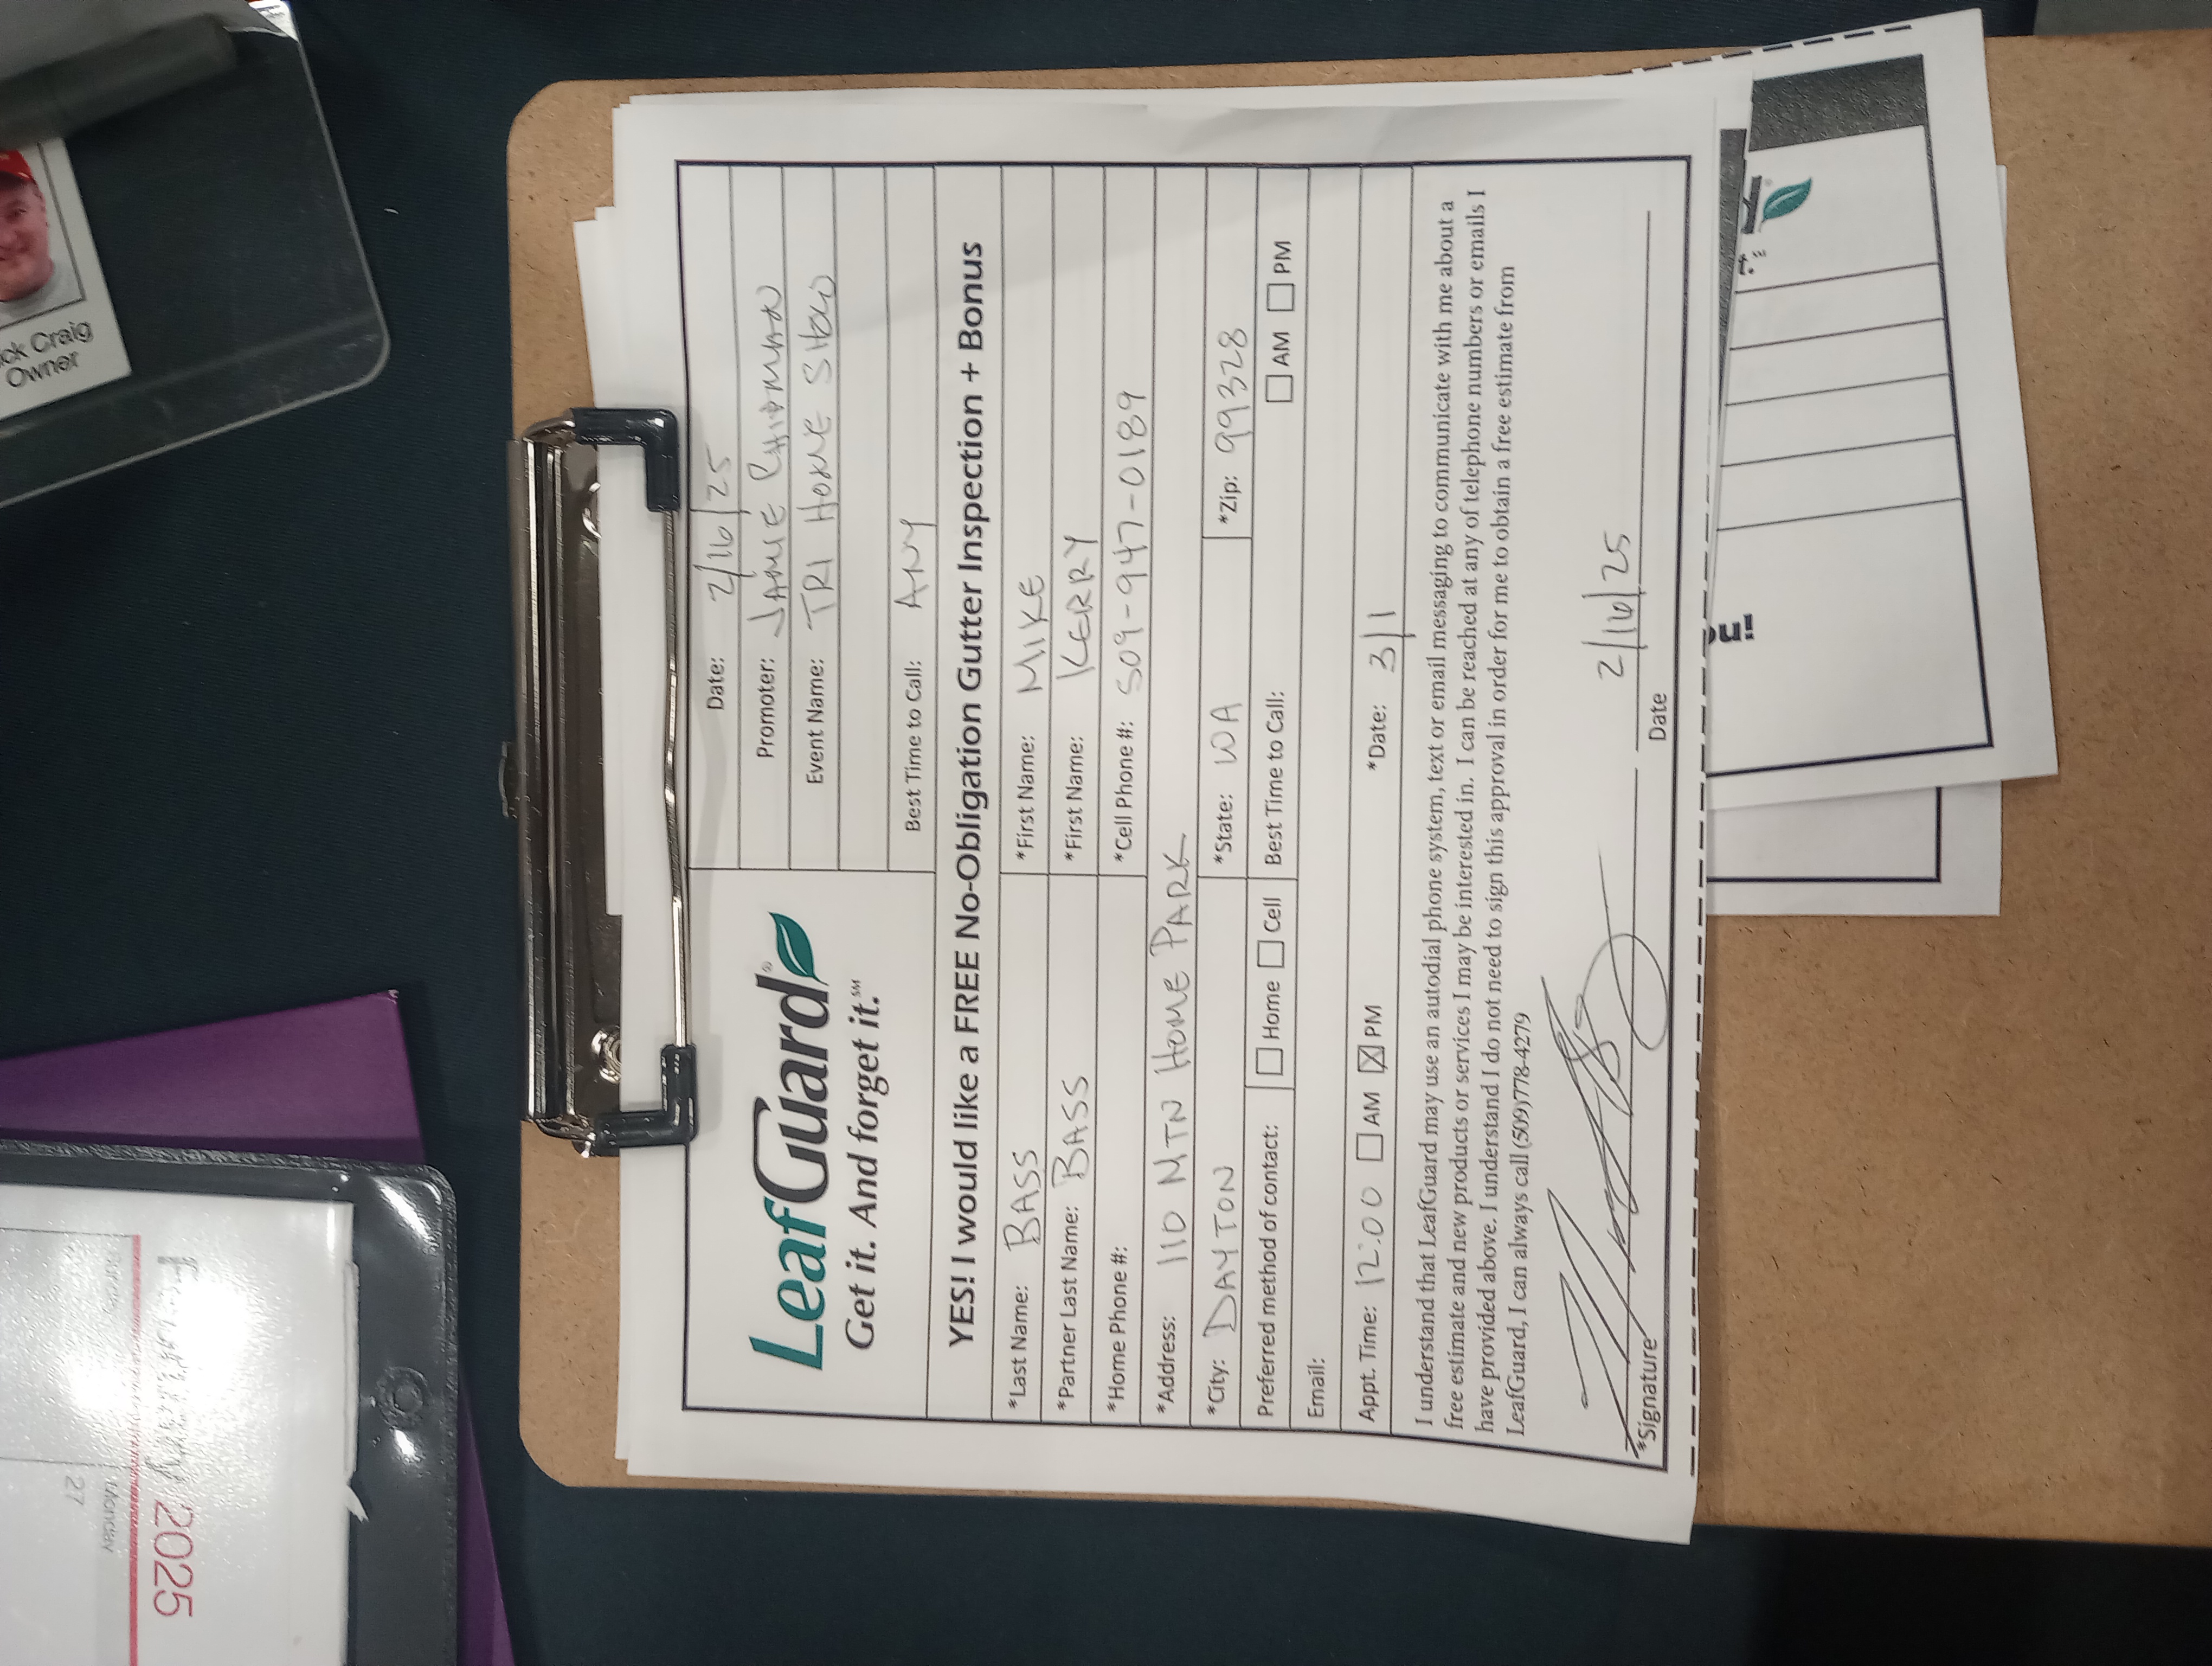 February 2025
Monday
27
ck Craig
Owner
LeafGuard®
Get it. And forget it.℠
Date: 2/16/25
Promoter: JAMIE CHIPMAN
Event Name: TRI HOME SHOW
Best Time to Call: ANY
YES! I would like a FREE No-Obligation Gutter Inspection + Bonus
*Last Name: BASS *First Name: MIKE
*Partner Last Name: BASS *First Name: KERRY
*Home Phone #: *Cell Phone #: 509-947-0189
*Address: 110 MTN HOME PARK
*City: DAYTON *State: WA *Zip: 99328
Preferred method of contact: Home Cell Best Time to Call: AM PM
Email:
Appt. Time: 12:00 AM PM *Date: 3/1
I understand that LeafGuard may use an autodial phone system, text or email messaging to communicate with me about a
free estimate and new products or services I may be interested in. I can be reached at any of telephone numbers or emails I
have provided above. I understand I do not need to sign this approval in order for me to obtain a free estimate from
LeafGuard, I can always call (509)778-4279
2/16/25
*Signature Date